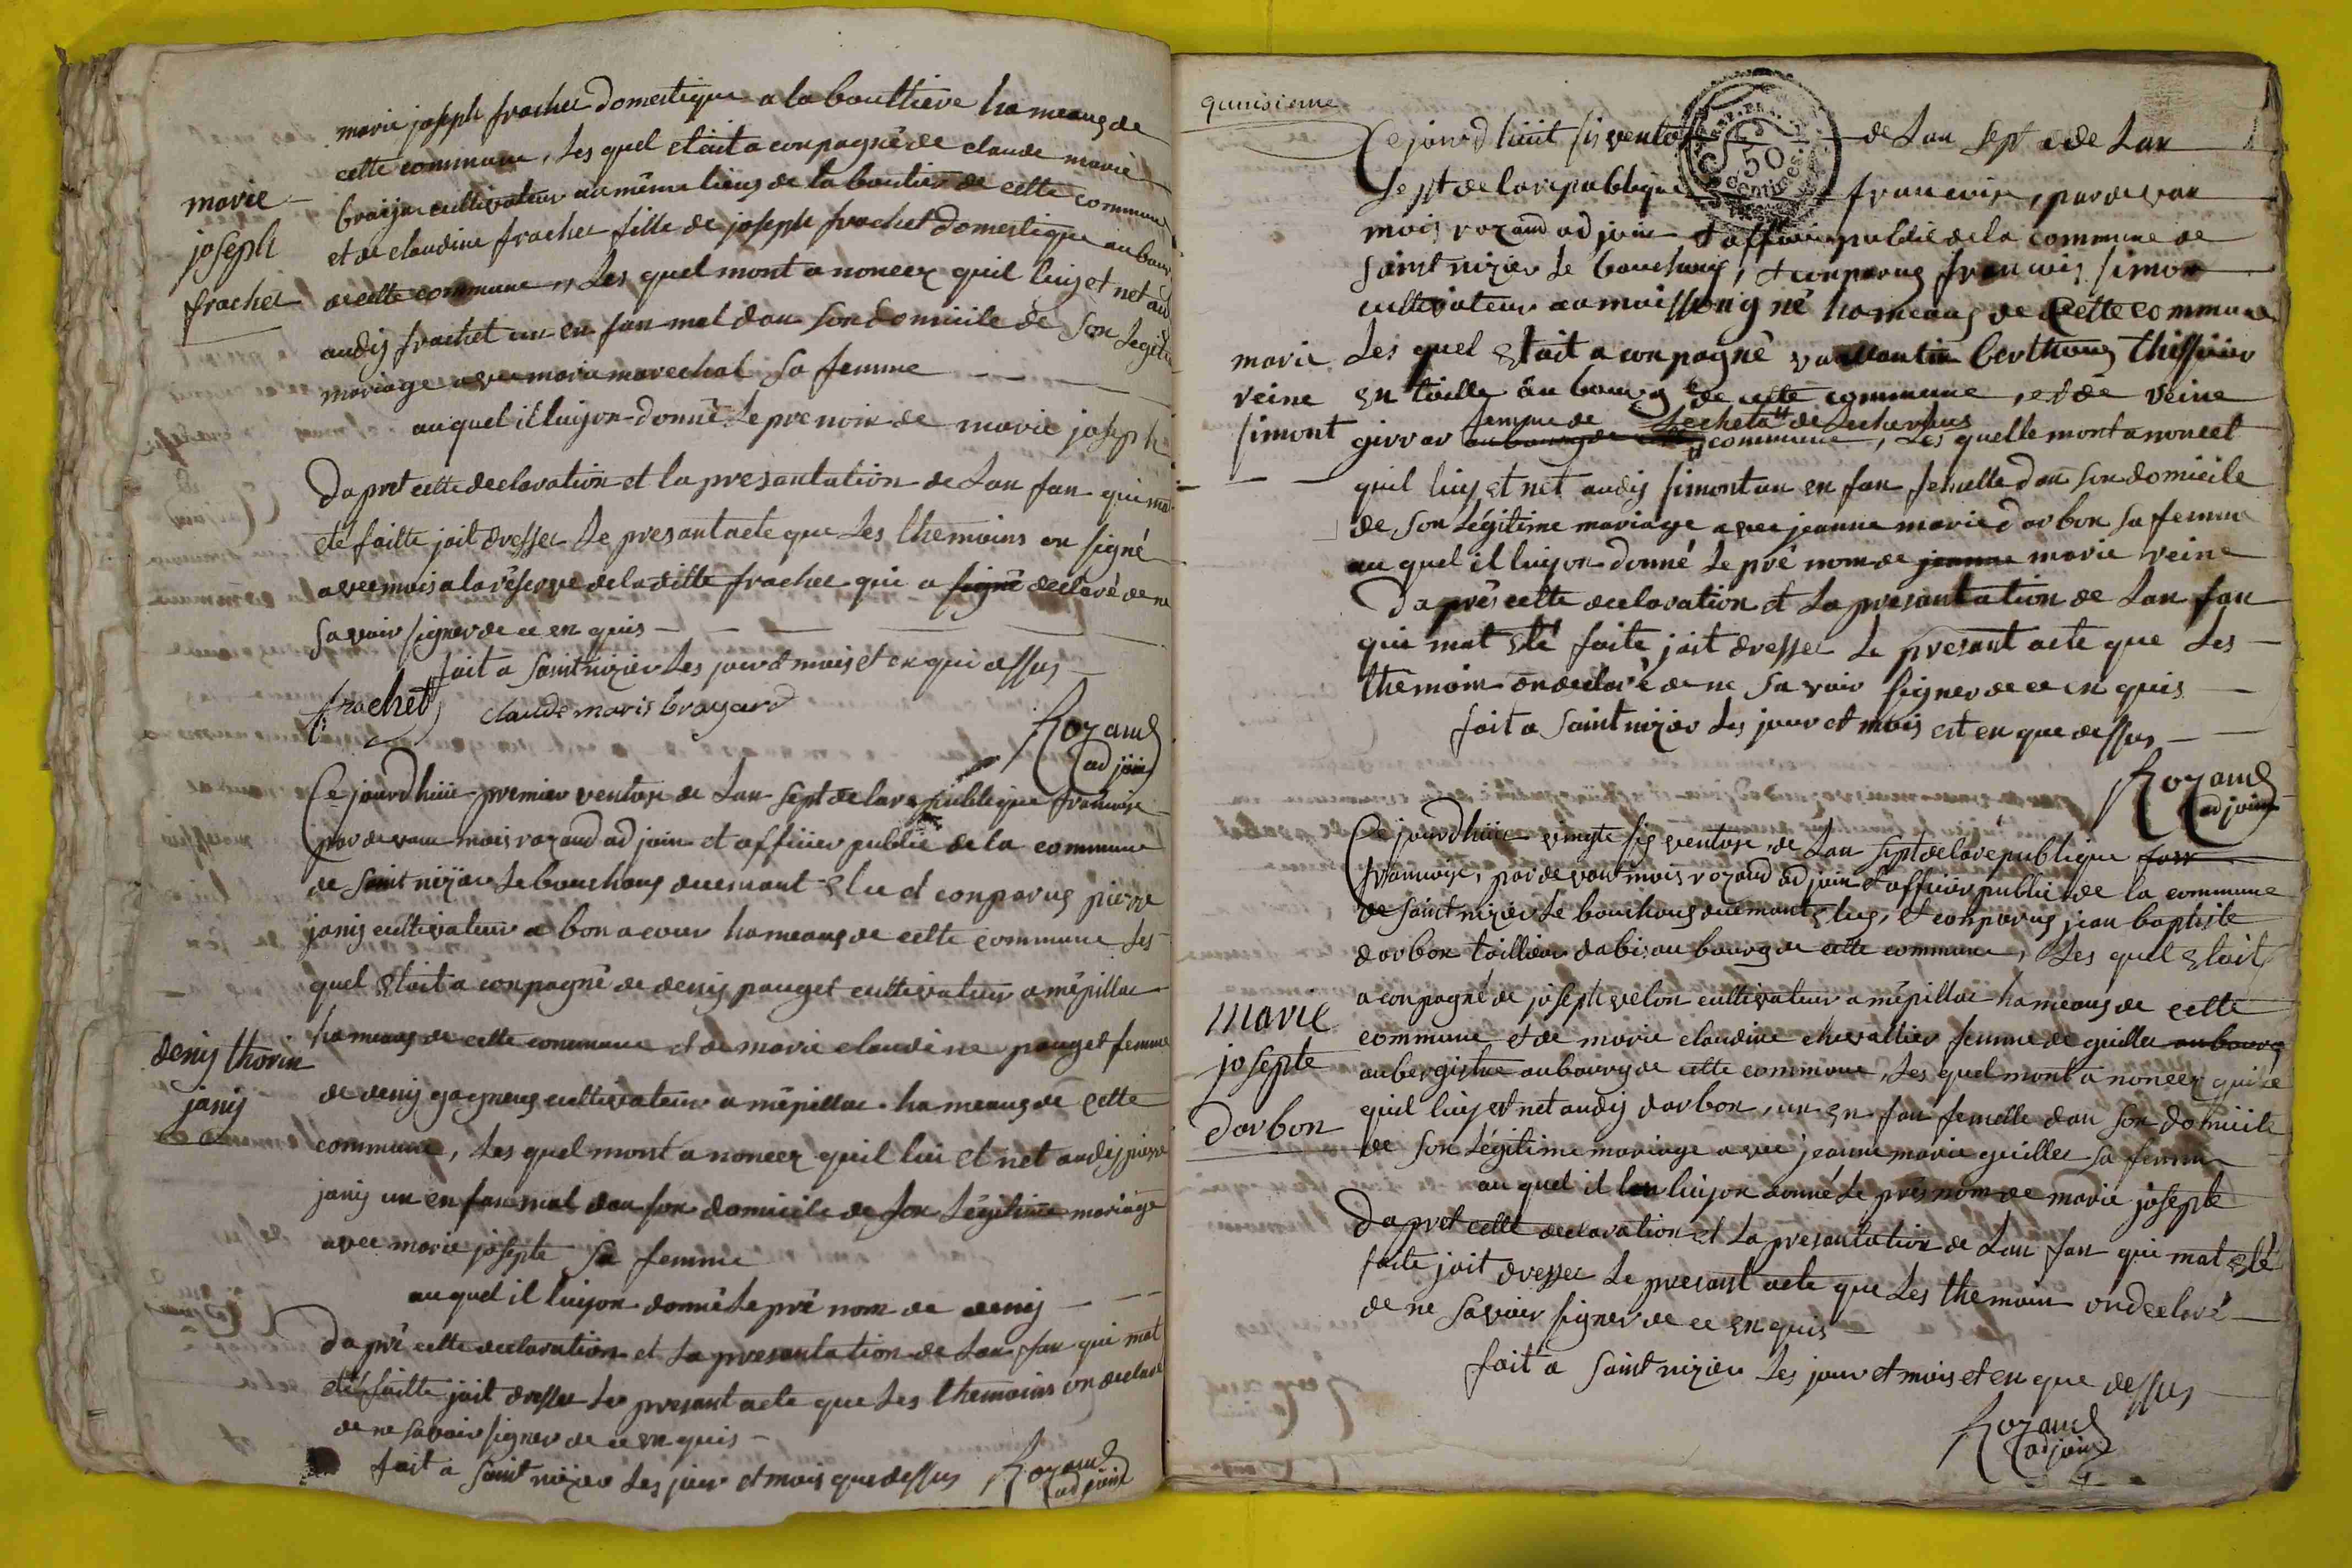 marie joseph frachet domestique a la bouttiere hameaug de
cette commune, Les quel etait a conpagné de claude marie
braija cultivateur au même lieug de la boutier de cette commune
et de claudine frachet fille de joseph frachet domestique au bourg
de cette commune, Les quel mont a noncez quil luij et net au
audij frachet un en fan mal dan son domicile de son Legiti
mariage avec maria marechal sa femme
auquel il luijon donné Le prenoim de marie joseph
marie
joseph
frachet
Da pret cette declaration et la presantation de Lan fan qui ma
eté faitte jait dresser Le presant acte que Les themoins on signé
avec mois a la reserve de la ditte frachet qui a signé declaré de ne
savoir signer de ce en quis
fait a saint nizier Les jour et mois et en qui dessus
frachet claude maris brayard
Rozand
adjoin
Ce jourdhuit premier ventose de Lan sept de la republique francoise
par devant mois rozand adjoin et officier public de la commune
de saint nizier Le bouchoug duemant elu et conparug pierre
janij cultivateur a bon a cour hameaug de cette commune Les
quel etait a conpagné de denij pauget cultivateur a mépillac
hameaug de cette commune et de marie claudine pauget femme
de denij gagneug cultivateur a mépillac hameaug de cette
commune, Les quel mont a noncez quil lui et net audij pierre
janij un en fan mal dan son domicile de son Légitime mariage
avec marie josepte sa femme
auquel il luijon donné Le pré nom de denij
denij thorin
janij
Da pré cette declaration et La presantation de Lan fan qui mat
eté faitte jait dresser Le presant acte que Les themoins on declaré
de ne savoir signer de ce en quis
fait a saint nizier Les jour et mois que dessus
Rozand
adjoin
Ce jourdhuit sis ventose de Lan sept de Lan
sept de la republique francoise, par devan
mois rozand adjoin et officier public de la commune de
saint nizier Le bouchoug, et conparug francois simon
cultivateur au maissongné hameaug de cette commune
Les quel etait a conpagné vallantin berthoug thissier
en toille au bourg de cette commune, et de reine
femme de
girrar au bourg de commune, Les quelle mont a noncet
quil luij et net audij simont un en fan femelle dan son domicile
de son Légitime mariage avec jeanne marie dorbon sa femme
au quel il luijon donné Le pré nom de jeanne marie reine
marie
reine
simont
Da prés cette declaration et La presantation de Lan fan
qui mat eté faite jait dresser Le presant acte que Les
themoin on declaré de ne savoir signer de ce en quis
fait a saint nizier Les jour et mois et en que dessus
Rozand
adjoin
Ce jourdhuit vingte sis ventose de Lan sept de la republique
francoise, par devant mois rozand adjoin et officier public de la commune
de saint nizier Le bouchoug duemant elug, et conparug jean baptiste
dorbon tailleur dabis au bourg de cette commune, Les quel etait
a conpagné de joseph velon cultivateur a mépillac hameaug de cette
commune et de marie claudine chevallier femme de guillet au bourg
aubergiste au bourg de cette commune, Les quel mont a noncez
quil luij et net audij dorbon, un en fan femelle dan son domicile
de son Légitime mariage avec jeanne marie guillet sa femme
au quel il luijon donné Le prés nom de marie josepte
marie
josepte
dorbon
Da pret cette declaration et La presantation de Lan fan qui mat eté
faite jait dresser Le presant acte que Les themoin on declaré
de ne savoir signer de ce en quis
fait a saint nizier Les jour et mois et en que dessus
Rozand
adjoin